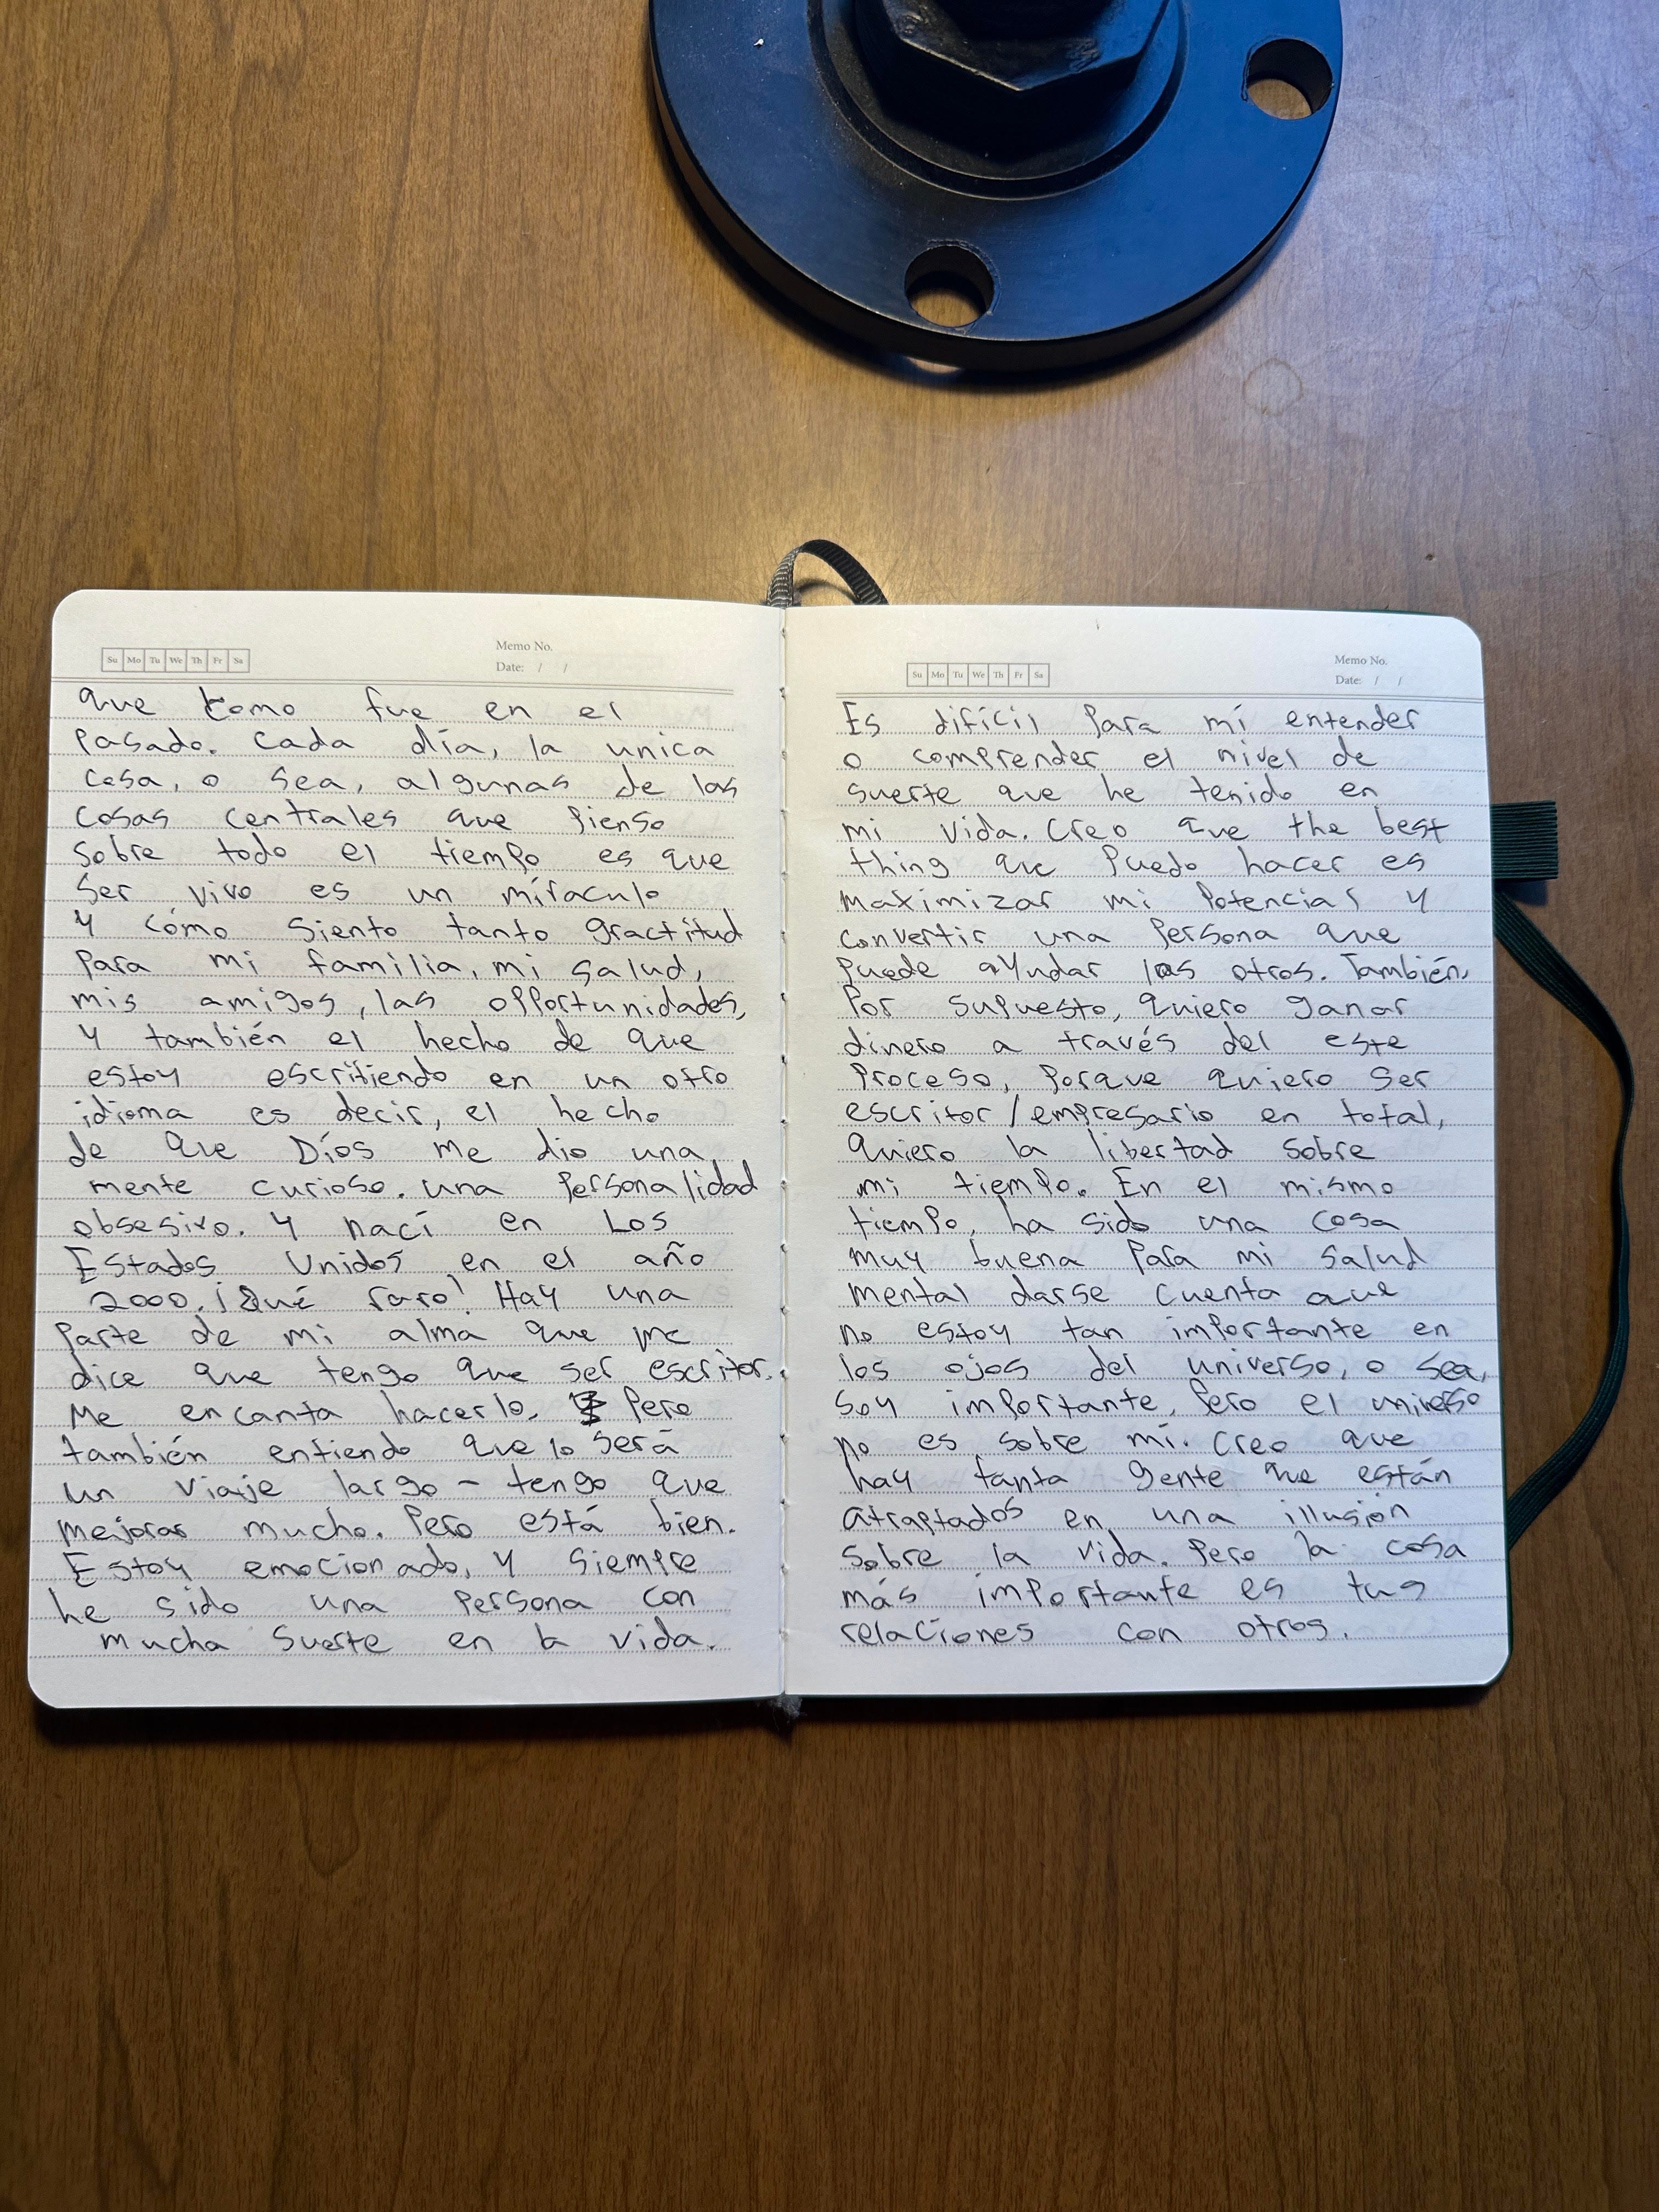 Su Mo Tu We Th Fr Sa
Memo No.
Date: / /
que como fue en el
pasado. Cada día, la unica
cosa, o sea, algunas de las
cosas centrales que pienso
sobre todo el tiempo es que
ser vivo es un míraculo
y cómo siento tanto gractitud
para mi familia, mi salud,
mis amigos, las opportunidades,
y también el hecho de que
estoy escritiendo en un otro
idioma es decir, el hecho
de que Díos me dio una
mente curioso. una personalidad
obsesivo. Y nací en Los
Estados Unidos en el año
2000. ¡Qué raro! Hay una
parte de mi alma que me
dice que tengo que ser escritor.
Me encanta hacerlo. Pero
también entiendo que lo será
un viaje largo - tengo que
mejorar mucho. Pero está bien.
Estoy emocionado, y siempre
he sido una persona con
mucha suerte en la vida.
Su Mo Tu We Th Fr Sa
Memo No.
Date: / /
Es difícil para mí entender
o comprender el nivel de
suerte que he tenido en
mi vida. Creo que the best
thing que puedo hacer es
maximizar mi potencial y
convertir una persona que
puede ayudar los otros. También,
por supuesto, quiero ganar
dinero a través del este
proceso, porque quiero ser
escritor/empresario en total,
quiero la libertad sobre
mi tiempo. En el mismo
tiempo, ha sido una cosa
muy buena para mi salud
mental darse cuenta que
no estoy tan importante en
los ojos del universo, o sea,
soy importante, pero el universo
no es sobre mí. Creo que
hay tanta gente que están
atraptados en una illusión
sobre la vida. Pero la cosa
más importante es tus
relaciones con otros.